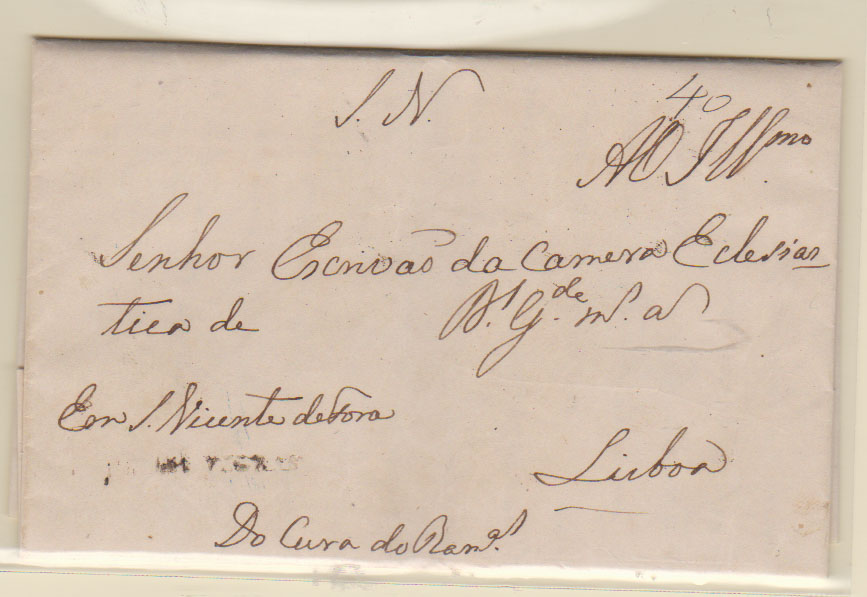 S. N.
40
AO Ill.mo
Senhor Escrivaõ da Camera Eclesias-
tica de
D.s G.de m.s a.s
Em S. Vicente de Fora
Lisboa
Do Cura do Ram.al